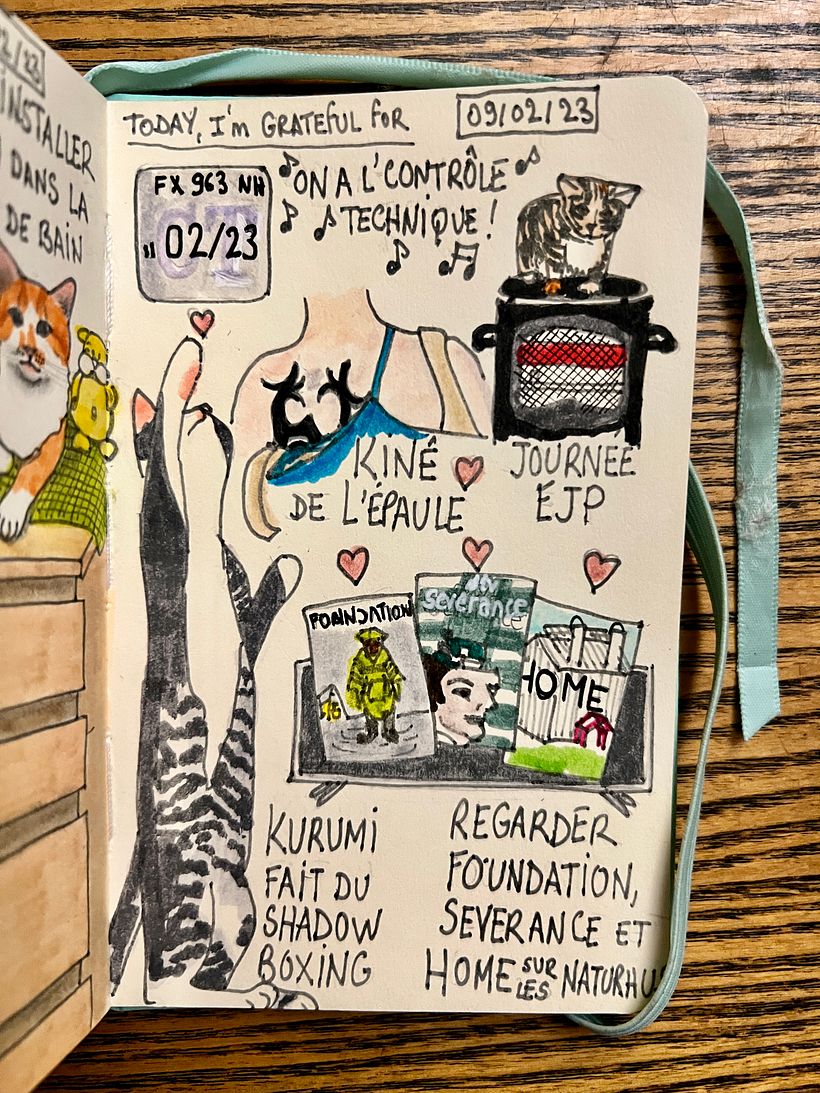 2/23
INSTALLER
DANS LA
DE BAIN
TODAY, I'm GRATEFUL FOR
09/02/23
FX 963 NH
CT
02/23
ON A L'CONTRÔLE
TECHNIQUE!
KINÉ
DE L'ÉPAULE
JOURNÉE
EJP
FOUNDATION
severance
HOME
KURUMI
FAIT DU
SHADOW
BOXING
REGARDER
FOUNDATION,
SEVERANCE ET
HOME SUR LES NATURHU